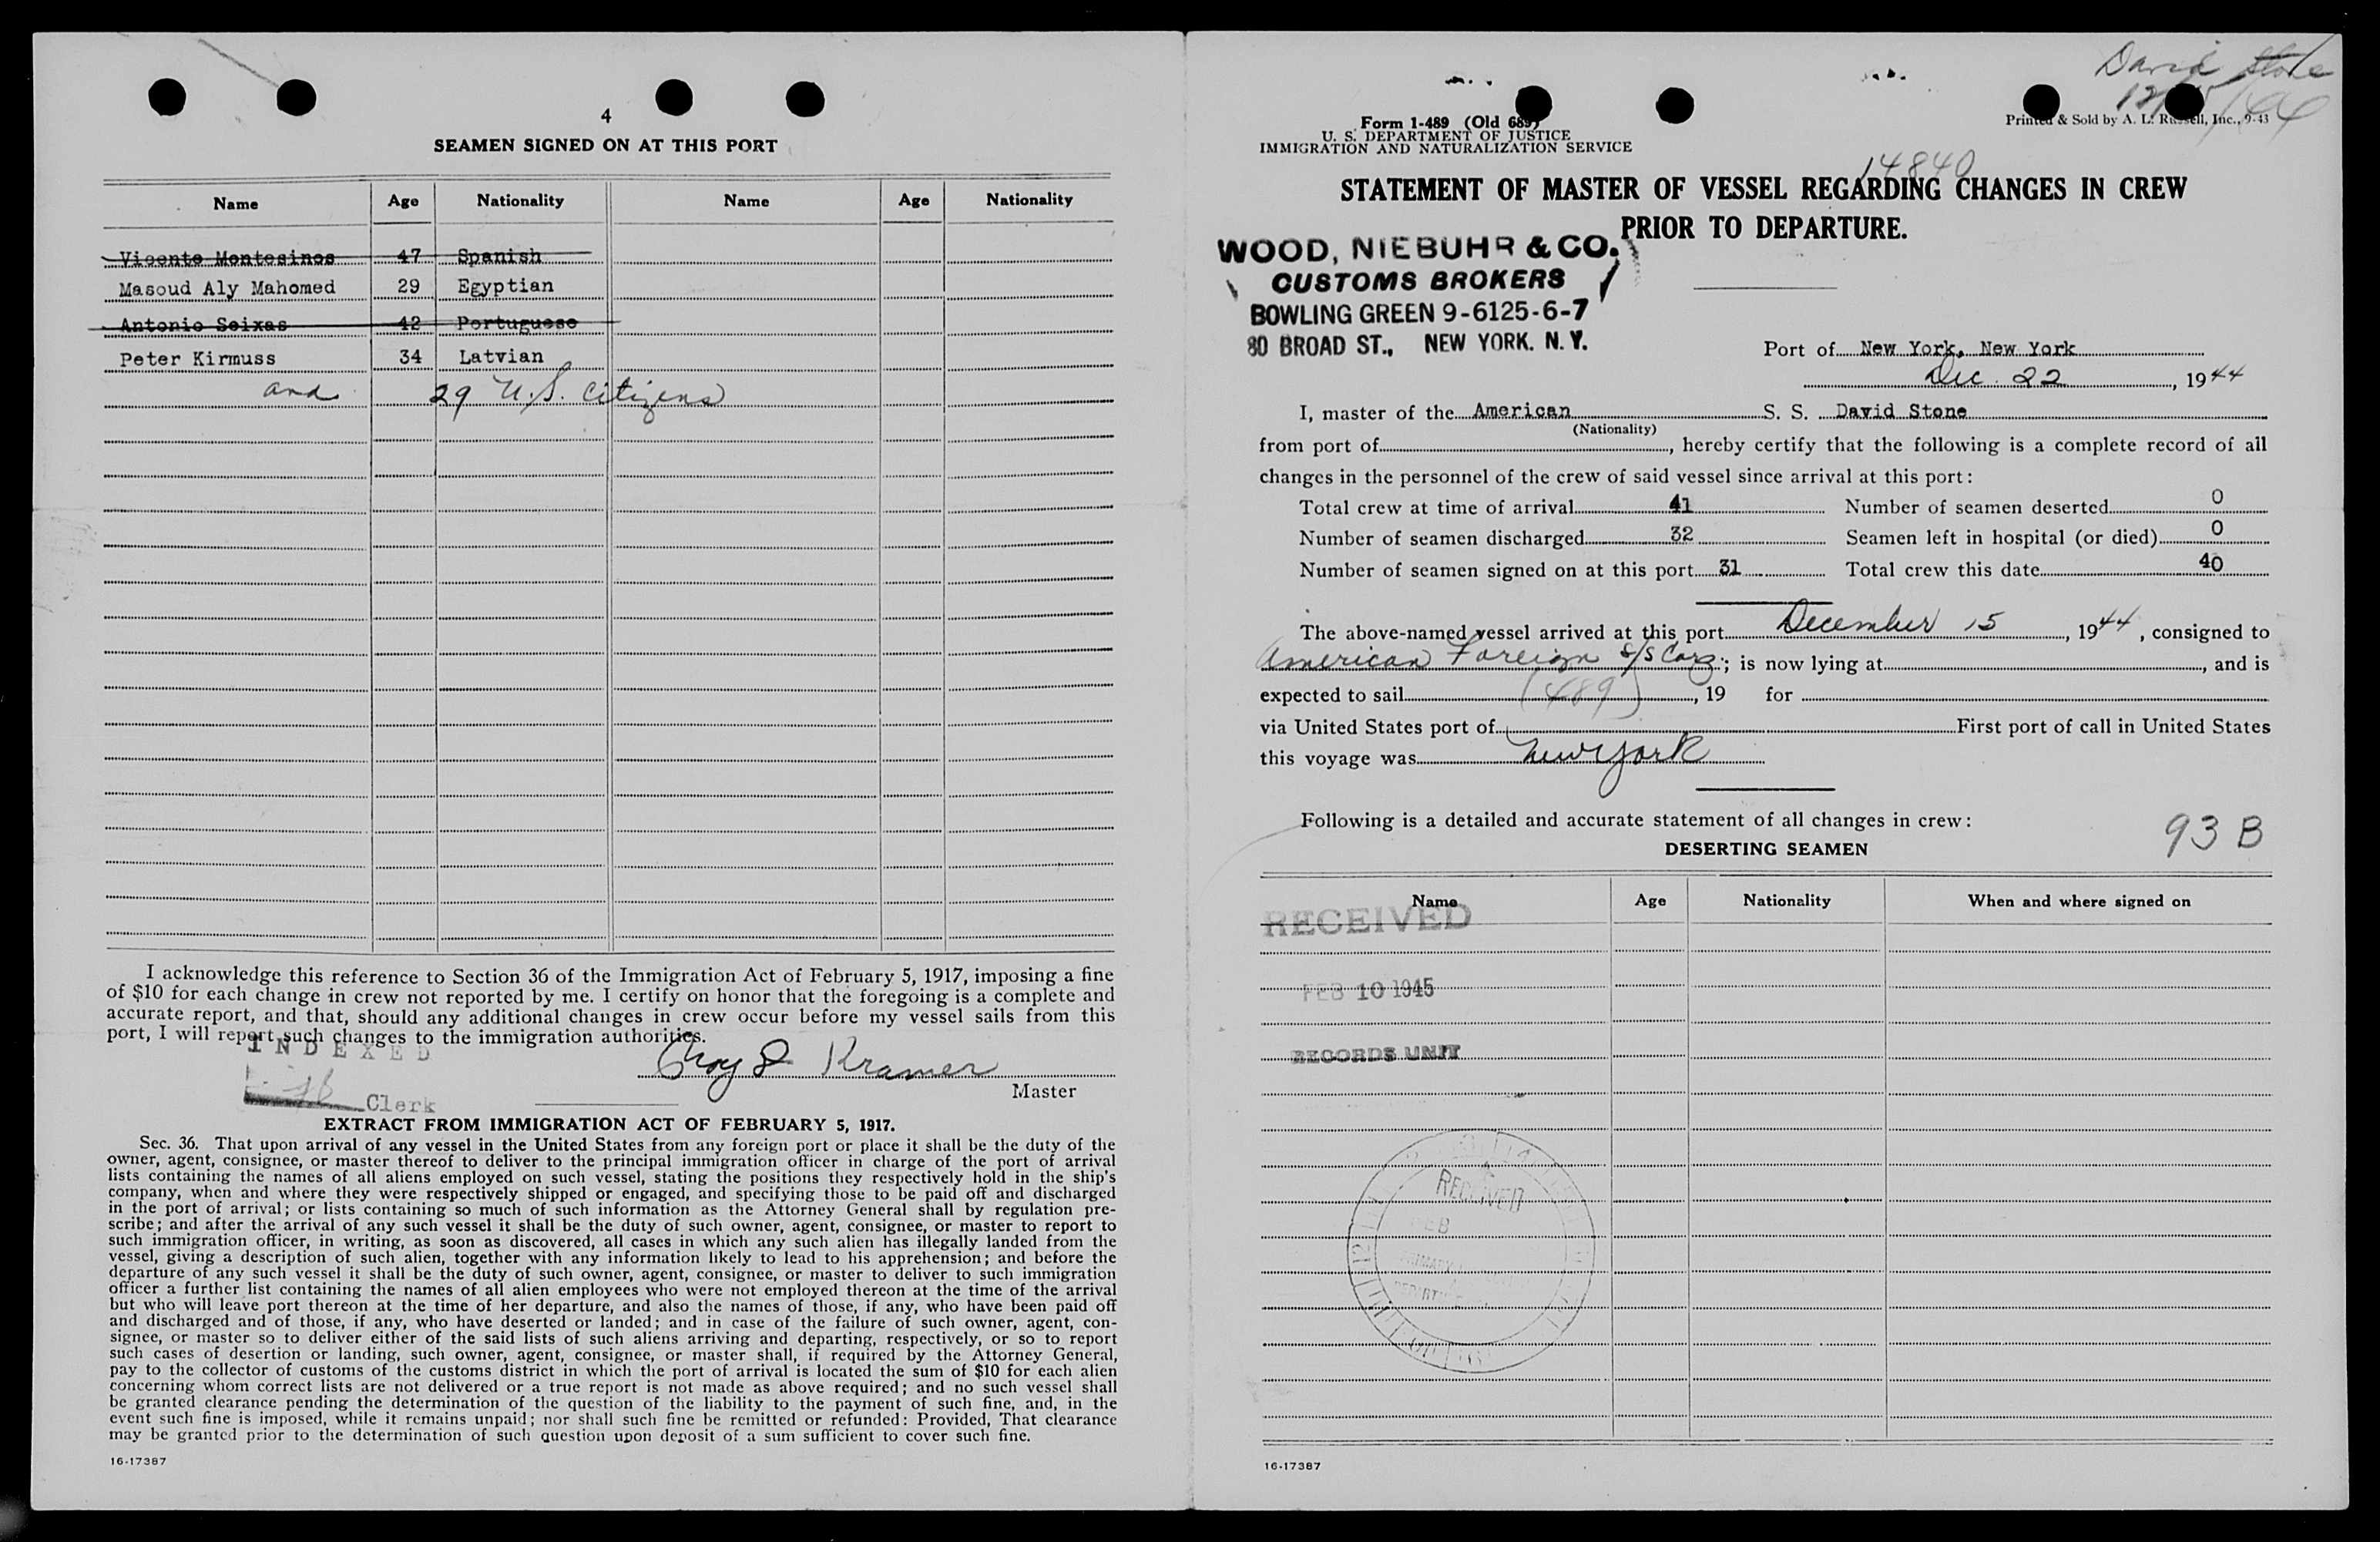 4
SEAMEN SIGNED ON AT THIS PORT
Name Age Nationality Name Age Nationality
Vicente Montesinos 47 Spanish
Masoud Aly Mahomed 29 Egyptian
Antonio Seixas 42 Portuguese
Peter Kirmuss 34 Latvian
and 29 U.S. Citizens
I acknowledge this reference to Section 36 of the Immigration Act of February 5, 1917, imposing a fine
of $10 for each change in crew not reported by me. I certify on honor that the foregoing is a complete and
accurate report, and that, should any additional changes in crew occur before my vessel sails from this
port, I will report such changes to the immigration authorities.
INDEXED
Kramer
Master
Clerk
EXTRACT FROM IMMIGRATION ACT OF FEBRUARY 5, 1917.
Sec. 36. That upon arrival of any vessel in the United States from any foreign port or place it shall be the duty of the
owner, agent, consignee, or master thereof to deliver to the principal immigration officer in charge of the port of arrival
lists containing the names of all aliens employed on such vessel, stating the positions they respectively hold in the ship's
company, when and where they were respectively shipped or engaged, and specifying those to be paid off and discharged
in the port of arrival; or lists containing so much of such information as the Attorney General shall by regulation pre-
scribe; and after the arrival of any such vessel it shall be the duty of such owner, agent, consignee, or master to report to
such immigration officer, in writing, as soon as discovered, all cases in which any such alien has illegally landed from the
vessel, giving a description of such alien, together with any information likely to lead to his apprehension; and before the
departure of any such vessel it shall be the duty of such owner, agent, consignee, or master to deliver to such immigration
officer a further list containing the names of all alien employees who were not employed thereon at the time of the arrival
but who will leave port thereon at the time of her departure, and also the names of those, if any, who have been paid off
and discharged and of those, if any, who have deserted or landed; and in case of the failure of such owner, agent, con-
signee, or master so to deliver either of the said lists of such aliens arriving and departing, respectively, or so to report
such cases of desertion or landing, such owner, agent, consignee, or master shall, if required by the Attorney General,
pay to the collector of customs of the customs district in which the port of arrival is located the sum of $10 for each alien
concerning whom correct lists are not delivered or a true report is not made as above required; and no such vessel shall
be granted clearance pending the determination of the question of the liability to the payment of such fine, and, in the
event such fine is imposed, while it remains unpaid; nor shall such fine be remitted or refunded: Provided, That clearance
may be granted prior to the determination of such question upon deposit of a sum sufficient to cover such fine.
16-17387
David Stone
Form 1-489 (Old 689)
U. S. DEPARTMENT OF JUSTICE
IMMIGRATION AND NATURALIZATION SERVICE
Printed & Sold by A. L. Russell, Inc., 9-43
14840
STATEMENT OF MASTER OF VESSEL REGARDING CHANGES IN CREW
PRIOR TO DEPARTURE.
WOOD, NIEBUHR & CO.
CUSTOMS BROKERS
BOWLING GREEN 9-6125-6-7
80 BROAD ST., NEW YORK. N. Y.
Port of New York, New York
Dec. 22, 1944
I, master of the American S. S. David Stone
(Nationality)
from port of, hereby certify that the following is a complete record of all
changes in the personnel of the crew of said vessel since arrival at this port:
Total crew at time of arrival 41 Number of seamen deserted 0
Number of seamen discharged 32 Seamen left in hospital (or died) 0
Number of seamen signed on at this port 31 Total crew this date 40
The above-named vessel arrived at this port December 15, 1944, consigned to
American Foreign S/S Corp; is now lying at, and is
expected to sail (489), 19 for
via United States port of First port of call in United States
this voyage was New York
Following is a detailed and accurate statement of all changes in crew:
93 B
DESERTING SEAMEN
Name Age Nationality When and where signed on
RECEIVED
FEB 10 1945
RECORDS UNIT
RECEIVED
FEB
16-17387